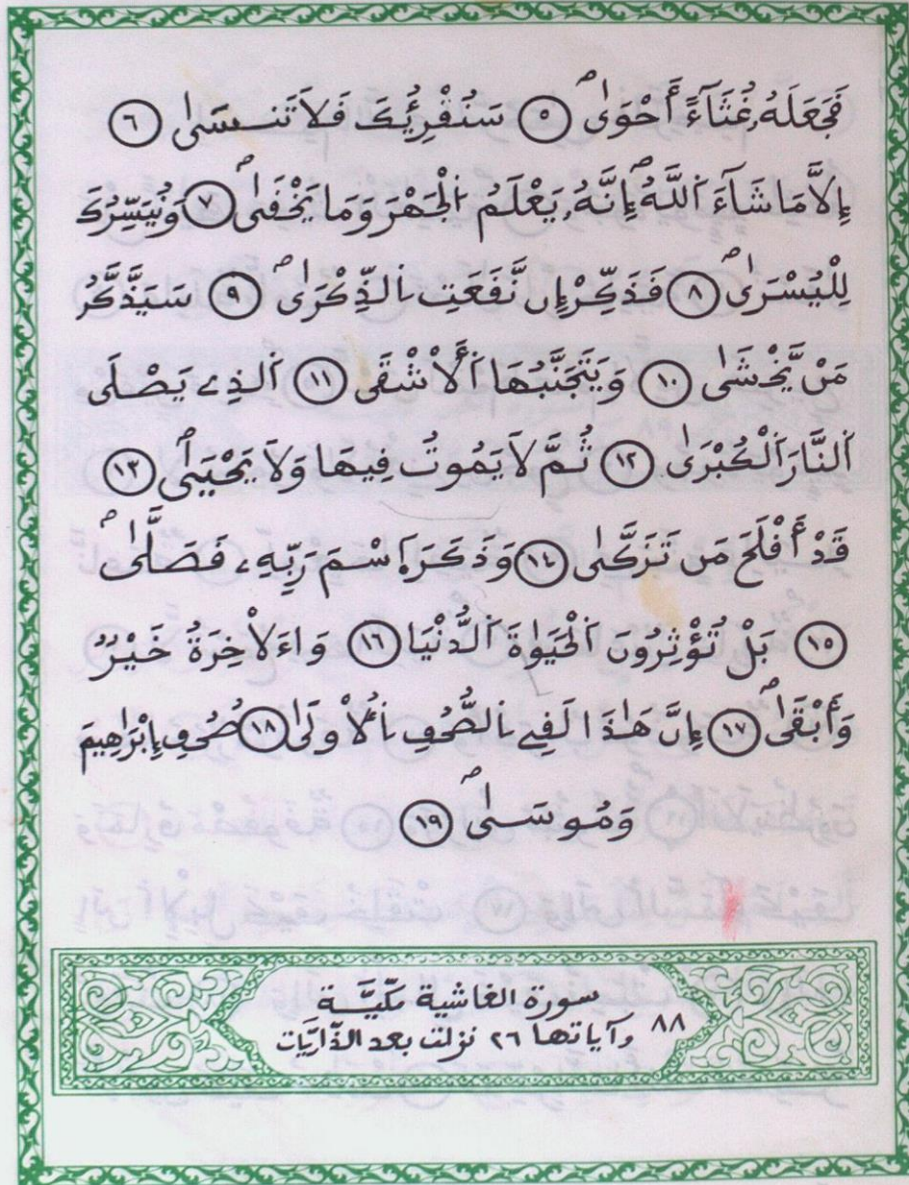 فَجَعَلَهُۥ غُثَآءً أَحْوَىٰۖ ٥ سَنُقْرِئُكَ فَلَا تَنسَىٰ ٦
إِلَّا مَا شَآءَ اَ۬للَّهُۖ إِنَّهُۥ يَعْلَمُ اُ۬لْجَهْرَ وَمَا يَخْفَىٰۖ ٧ وَنُيَسِّرُكَ
لِلْيُسْرَىٰۖ ٨ فَذَكِّرْ إِن نَّفَعَتِ اِ۬لذِّكْرَىٰۖ ٩ سَيَذَّكَّرُ
مَنْ يَّخْشَىٰ ١٠ وَيَتَجَنَّبُهَا اَ۬لْأَشْقَى ١١ اَ۬لذِے يَصْلَى
اَ۬لنَّارَ اَ۬لْكُبْرَىٰ ١٢ ثُمَّ لَا يَمُوتُ فِيهَا وَلَا يَحْيَىٰۖ ١٣
قَدْ أَفْلَحَ مَن تَزَكَّىٰ ١٤ وَذَكَرَ اَ۪سْمَ رَبِّهِۦ فَصَلَّىٰۖ
١٥ بَلْ تُؤْثِرُونَ اَ۬لْحَيَوٰةَ اَ۬لدُّنْيَا ١٦ وَاءَلَاْخِرَةُ خَيْرٌ
وَأَبْقَىٰۖ ١٧ إِنَّ هَٰذَا لَفِے اِ۬لصُّحُفِ اِ۬لْأُولَىٰ ١٨ صُحُفِ إِبْرَٰهِيمَ
وَمُوسَىٰۖ ١٩
سورة الغاشية مكّيّة
٨٨ وآياتها ٢٦ نزلت بعد الذّاريَات